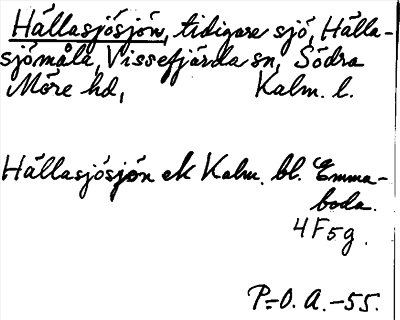 Hällasjösjön, tidigare sjö, Hälla-
sjömåla, Vissefjärda sn, Södra
Möre hd, Kalm. l.
Hällasjösjön ek Kalm. bl. Emma-
boda.
4F5g.
P-O. A. -55.